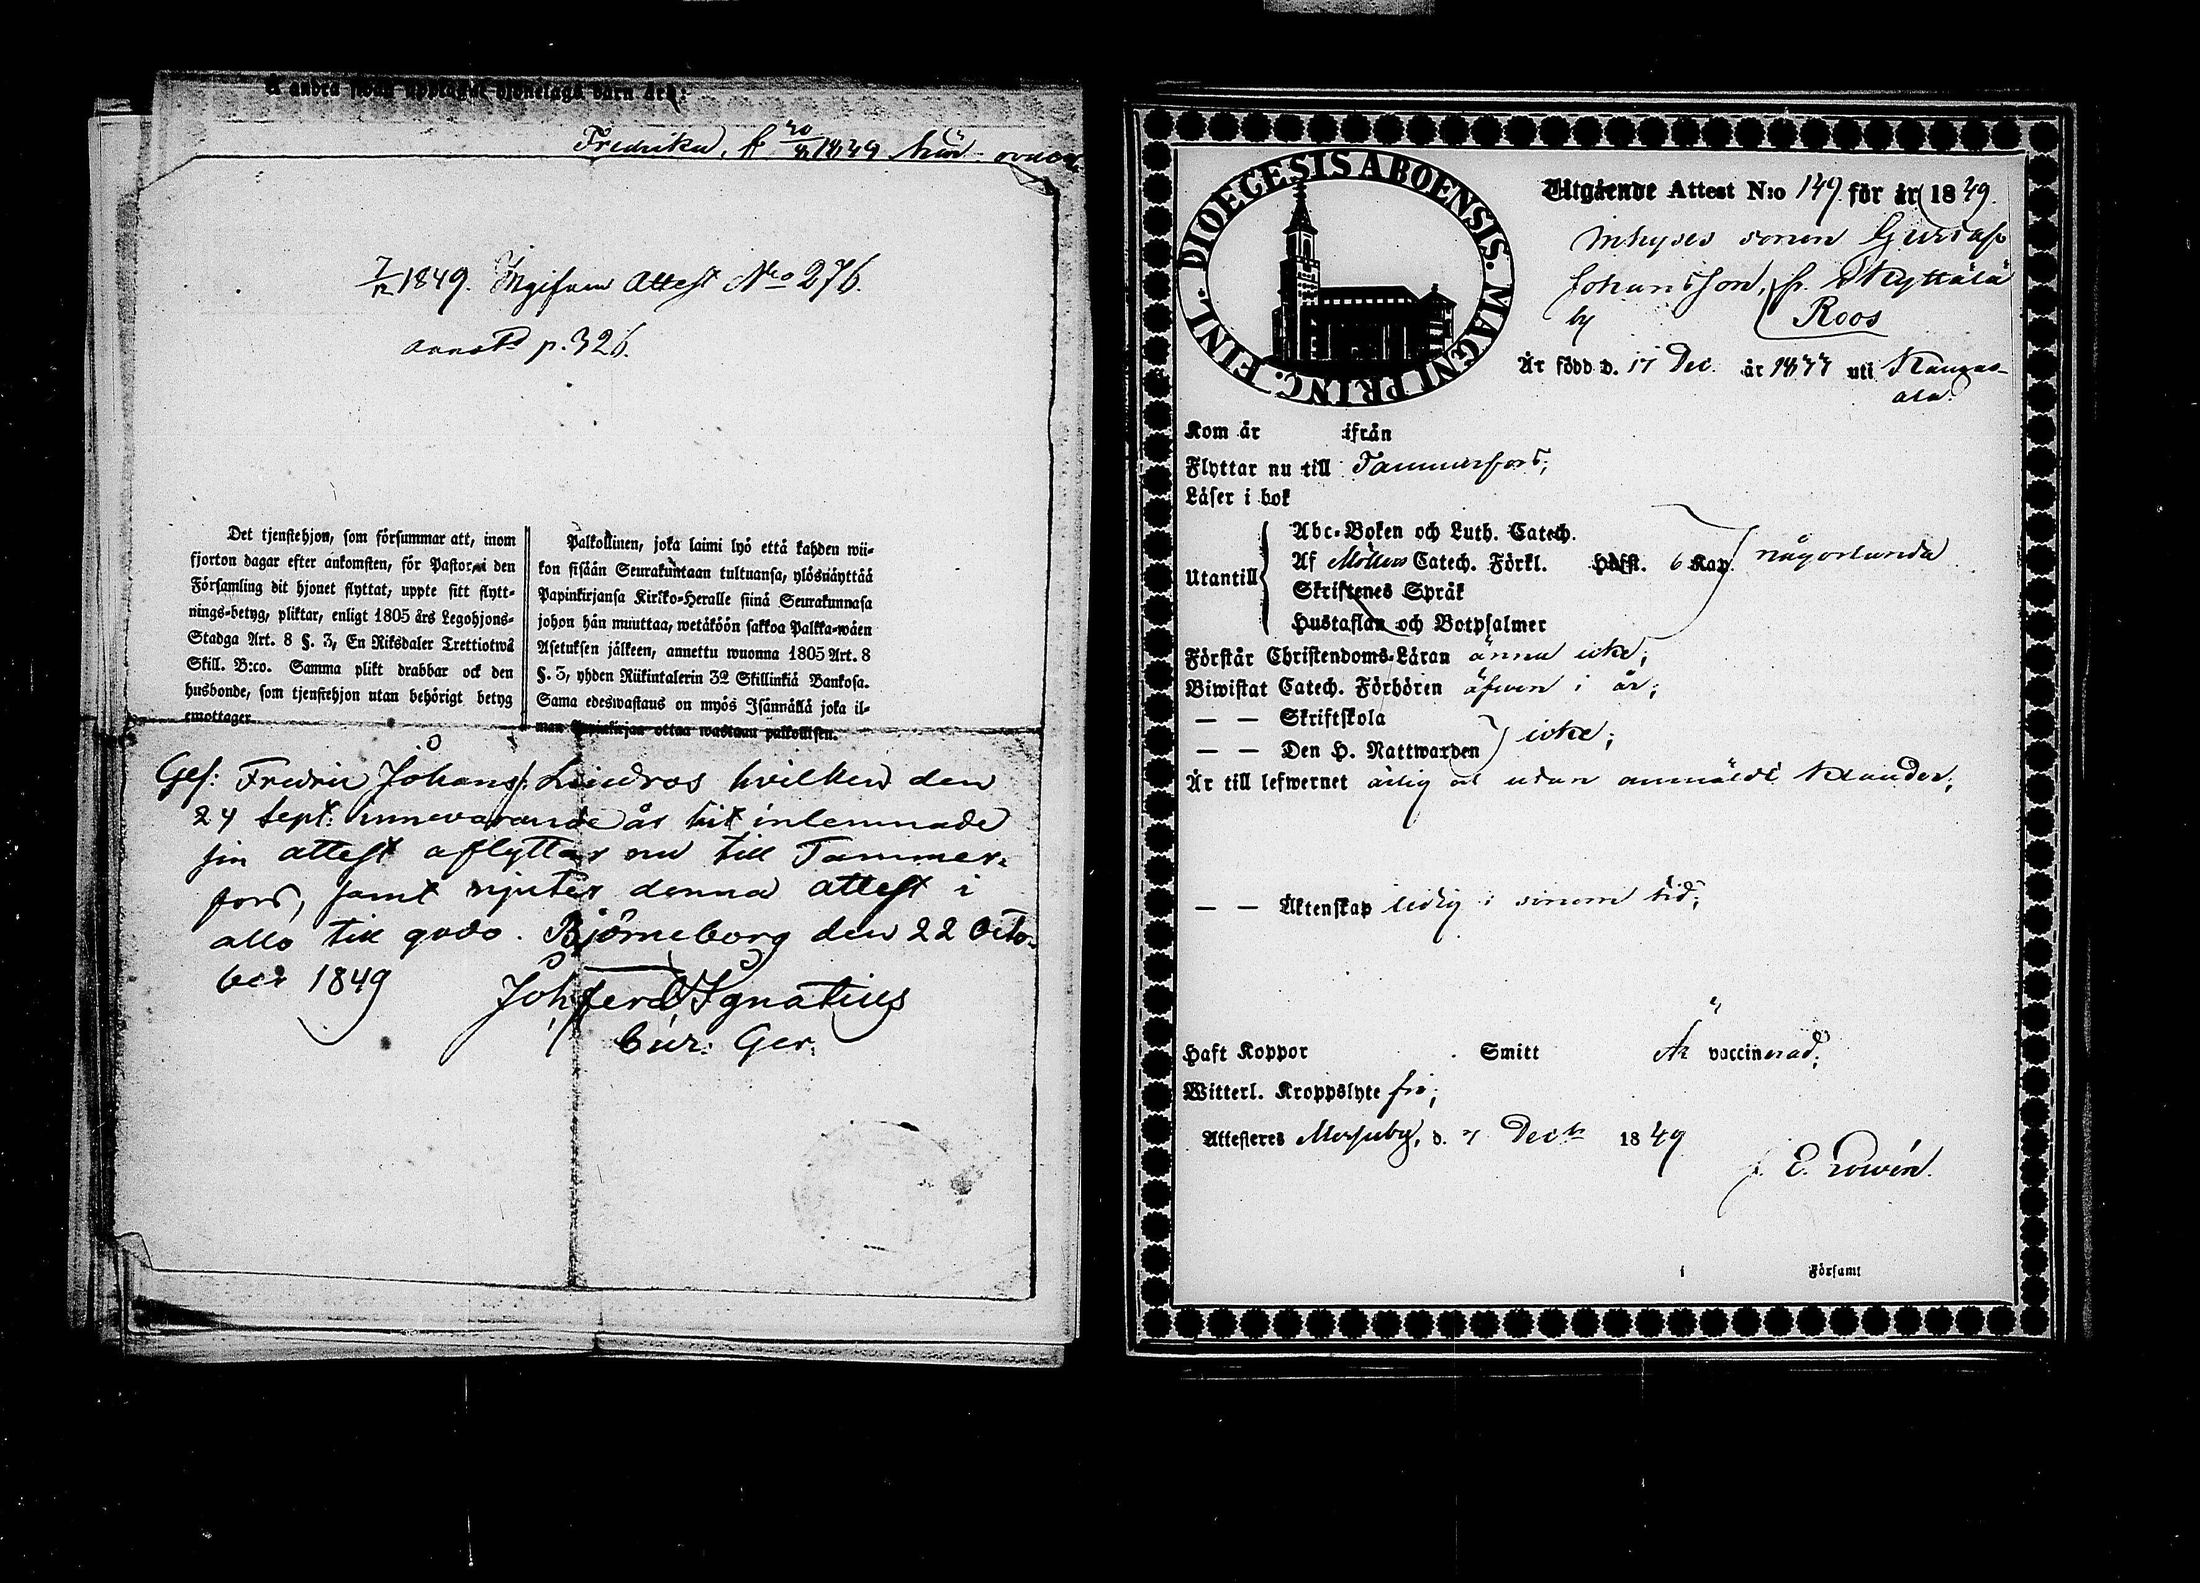 å andra sidan upptagne hjonelags barn äro:
Fredrika, f. 20/8 1849
7/12 1849. Ingifven Attest No 276.
annot p. 326.
Det tjenstehjon, som försummar att, inom
fjorton dagar efter ankomsten, för Pastor i den
Församling dit hjonet flyttat, uppte sitt flytt-
nings-betyg, pliktar, enligt 1805 års Legohjons-
Stadga Art. 8 §. 3, En Riksdaler Trettiotwå
Skill. B:co. Samma plikt drabbar ock den
husbonde, som tjenstehjon utan behörigt betyg
emottager.
Palkollinen, joka laimi lyö että kahden wii-
kon sisään Seurakuntaan tultuansa, ylösnäyttää
Papinkirjansa Kirkko-Heralle siinä Seurakunnasa
johon hän muuttaa, wetäköön sakkoa Palkka-wäen
Asetuksen jälkeen, annettu wuonna 1805 Art. 8
§. 3, yhden Riikintalerin 32 Skillinkiä Bankosa.
Sama edeswastaus on myös Isännällä joka il-
man Papinkirjaa ottaa wastaan palkollisen.
Ges: Fredric Johanss: Lindros hvilken den
24 Sept. innevarande år hit inlemnade
sin attest aflyttar nu till Tammer-
fors, samt njuter denna attest i
allo till godo. Björneborg den 22 Octo-
ber 1849
Joh. Ferd. Ignatius
Cur: Ger.
DIOECESIS ABOENSIS. MAGNI PRINC. FINL.
Utgående Attest N:o 149 för år 1849.
Inhyses sonen Gustaf
Johansson, fr.
by Roos
Är född d. 17 Dec. år uti Kangas-
ala.
Kom år ifrån
Flyttar nu till Tammerfors;
Läser i bok
Utantill
Abc-Boken och Luth. Catech.
Af Möllers Catech. Förkl. Höfft. 6 Kap. någorlunda
Skriftenes Språk
Hustaflan och Botpsalmer
Förstår Christendoms-Läran ännu icke;
Biwistat Catech. Förhören äfven i år;
— — Skriftskola
— — Den H. Nattwarden icke;
Är till lefwernet ärlig och utan anmäldt klander;
— — Äktenskap ledig i sinom tid;
Haft Koppor Smitt Är vaccinerad;
Witterl. Kroppslyte fri;
Attesteres Messuby, d. 7 Decbr 1849
E. Lowén.
i Församl